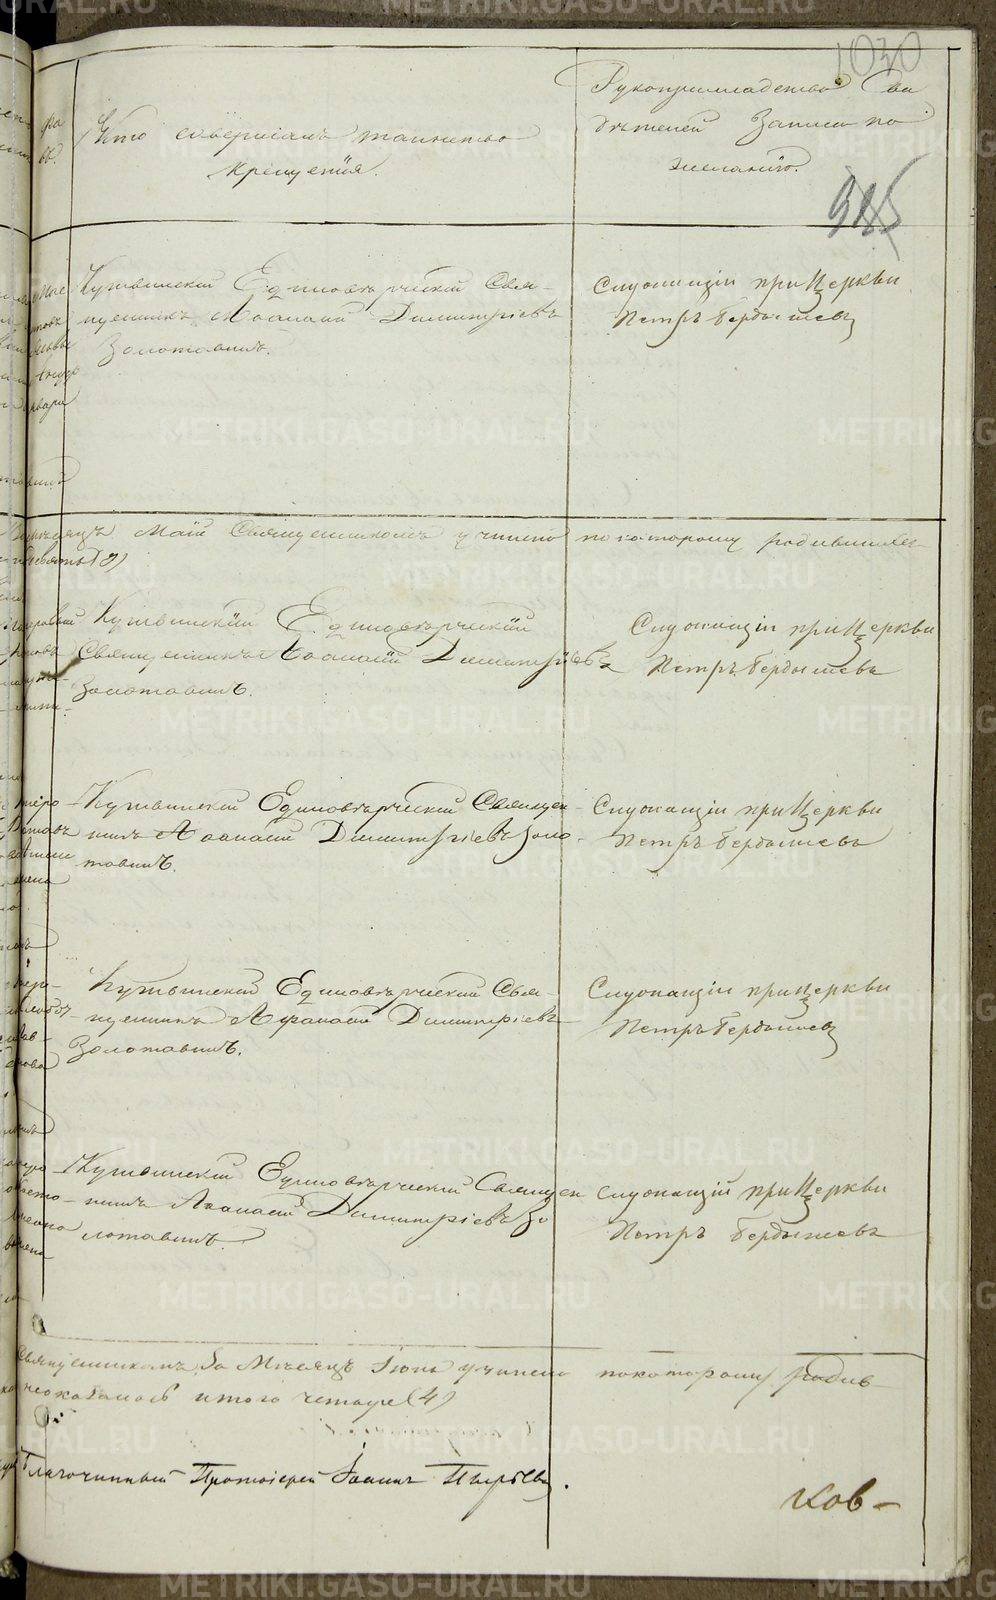 1030
Кто совершалъ таинство
крещенія.
Рукоприкладство сви
дѣтелей записи по
желанію.
Кушвинскій Единовѣрческій Свя-
щенникъ Аѳанасій Димитріевъ
Золотавинъ.
Служащій при Церкви
Петръ Бердышевъ
Мѣсяцъ Маій Священникомъ учинено по которому родившихся
(9)
Кушвинскій Единовѣрческій
Священникъ Аѳанасій Димитріевъ
Золотавинъ.
Служащій при Церкви
Петръ Бердышевъ
Кушвинскій Единовѣрческій Священ-
никъ Аѳанасій Димитріевъ Золо-
тавинъ.
Служащій при Церкви
Петръ Бердышевъ
Кушвинскій Единовѣрческій Свя-
щенникъ Афанасій Димитріевъ
Золотавинъ.
Служащій при Церкви
Петръ Бердышевъ
Кушвинскій Единовѣрческій Священ
никъ Аѳанасій Димитріевъ Зо
лотавинъ.
Служащій при Церкви
Петръ Бердышевъ
Священникомъ За Мѣсяцъ Іюнь учинено по которому родив
неоказалось итого четыре (4)
Благочинный Протоіерей Іоаннъ Пырьевъ.
Ков-
METRIKI.GASO-URAL.RU